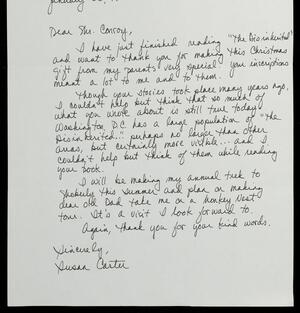 January
Dear Mr. Conroy,
I have just finished reading "The Disinherited"
and want to thank you for making this Christmas
gift from my parents very special. Your inscriptions
meant a lot to me and to them.
Though your stories took place many years ago,
I couldn't help but think that so much of
what you wrote about is still true today.
Washington D.C. has a large population of "the
Disinherited" perhaps no larger than other
areas, but certainly more visible... and I
couldn't help but think of them while reading
your book.
I will be making my annual trek to
Moberly this summer and plan on making
dear old Dad take me on a Monkey Nest
tour. It's a visit I look forward to.
Again, thank you for your kind words.
Sincerely,
Susan Carter